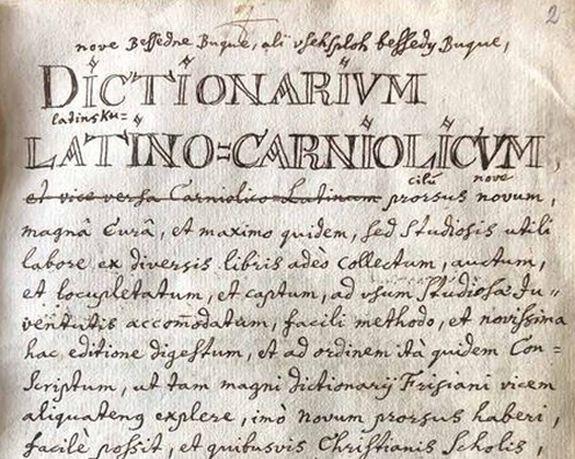 2
nove Beſſedne Buque, ali vſehſploh beſſedy Buque,
DICTIONARIVM
latinsku=
LATINO=CARNIOLICVM,
cilú nove
et vice versa Carniolico-Latinum prorsus novum,
magnâ Curâ, et maximo quidem, ſed ſtudioſis utili
labore ex diverſis libris adeo collectum, auctum,
et locupletatum, et captum, ad vſum ſtudioſæ Ju=
ventutis accom̄odatum, facili methodo, et noviſſima
hac editione digeſtum, et ad ordinem ità quidem Con=
ſcriptum, ut tam magni dictionarij Friſiani vicem
aliquatenq explere, imò novum prorsus haberi,
facilè poſſit, et quibuſvis Chriſtianis Scholis,